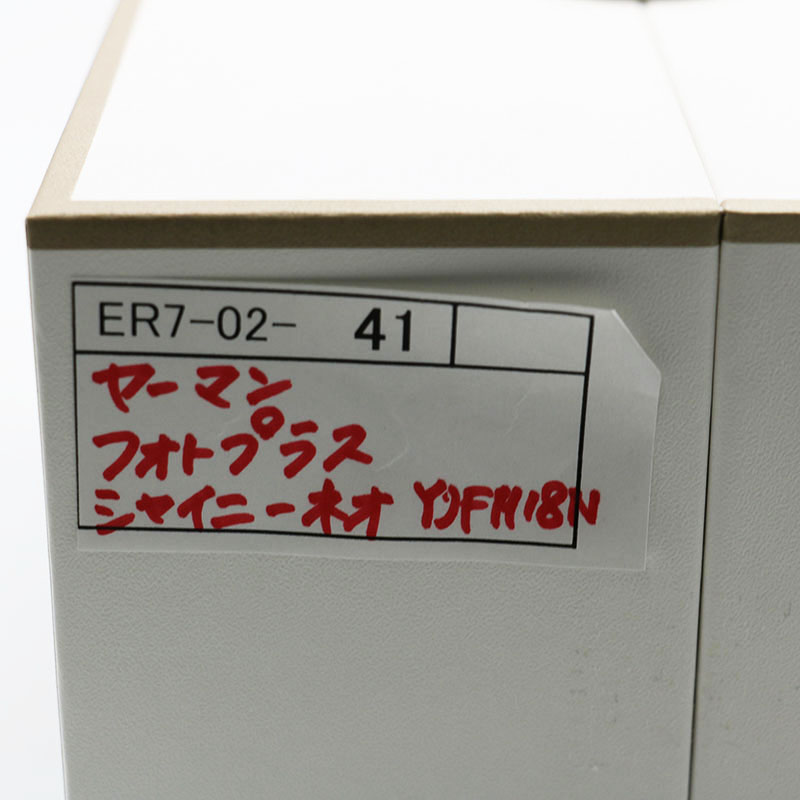 ER7-02- 41
ヤーマン
フォトプラス
シャイニーネオ YJFM18N